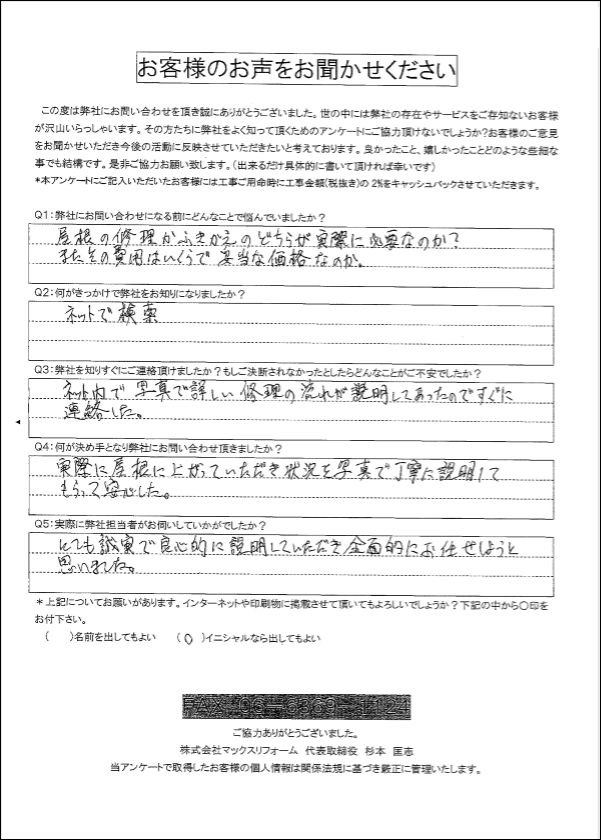 お客様のお声をお聞かせください
この度は弊社にお問い合わせを頂き誠にありがとうございました。世の中には弊社の存在やサービスをご存知ないお客様
が沢山いらっしゃいます。その方たちに弊社をよく知って頂くためのアンケートにご協力頂けないでしょうか?お客様のご意見
をお聞かせいただき今後の活動に反映させていただきたいと考えております。良かったこと、嬉しかったことどのような些細な
事でも結構です。是非ご協力お願い致します。(出来るだけ具体的に書いて頂ければ幸いです)
*本アンケートにご記入いただいたお客様には工事ご用命時に工事金額(税抜き)の2%をキャッシュバックさせていただきます。
Q1:弊社にお問い合わせになる前にどんなことで悩んでいましたか?
屋根の修理かふきかえのどちらが実際に必要なのか?
またその費用はいくらで妥当な価格なのか。
Q2:何がきっかけで弊社をお知りになりましたか?
ネットで検索
Q3:弊社を知りすぐにご連絡頂けましたか?もしご決断されなかったとしたらどんなことがご不安でしたか?
ネット内で写真で詳しい修理の流れが説明してあったのですぐに
連絡した。
Q4:何が決め手となり弊社にお問い合わせ頂きましたか?
実際に屋根に上がっていただき状況を写真で丁寧に説明して
もらって安心した。
Q5:実際に弊社担当者がお伺いしていかがでしたか?
とても誠実で良心的に説明していただき全面的にお任せしようと
思いました。
*上記についてお願いがあります。インターネットや印刷物に掲載させて頂いてもよろしいでしょうか?下記の中から〇印を
をお付下さい。
( )名前を出してもよい (〇)イニシャルなら出してもよい
ご協力ありがとうございました。
株式会社マックスリフォーム 代表取締役 杉本 匡志
当アンケートで取得したお客様の個人情報は関係法規に基づき厳正に管理いたします。